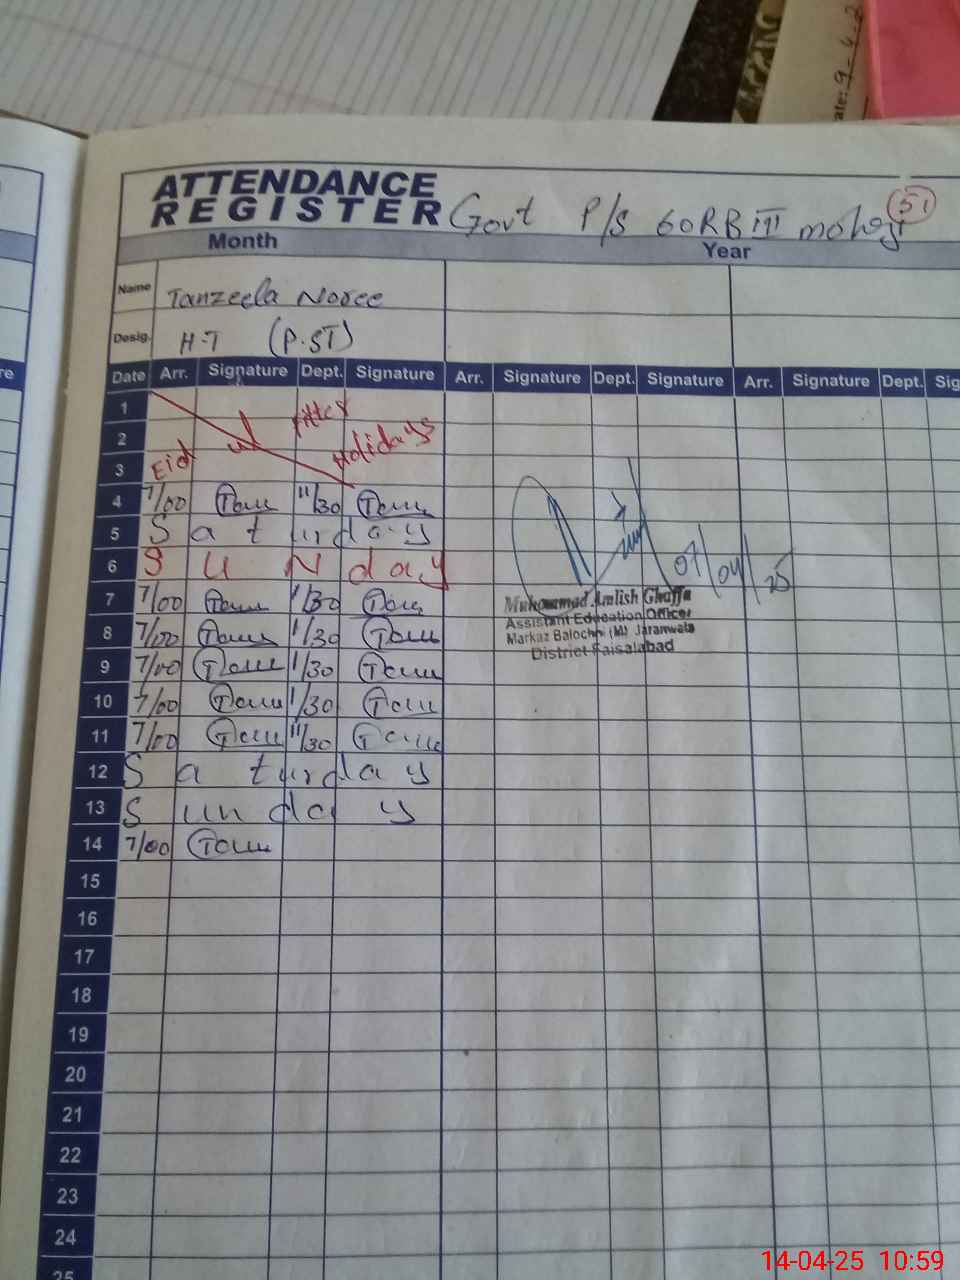 ate: 9-4-2
ATTENDANCE
REGISTER Govt P/S 60RB III 51
Month Year
Name Tanzeela
Desig. H.T (P.ST)
re Date Arr. Signature Dept. Signature Arr. Signature Dept. Signature Arr. Signature Dept. Sig
1
2
3 Eid ul Fitter Holidays
4 7/00 11/30
5 Saturday
6 SUNday
7 7/00 1/30
8 7/00 1/30
9 7/00 1/30
10 7/00 1/30
11 7/00 11/30
12 Saturday
13 Sunday
14 7/00
07/04/25
Assistant Education Officer
Markaz Balochni (M) Jaranwala
District Faisalabad
15
16
17
18
19
20
21
22
23
24
25
14-04-25 10:59